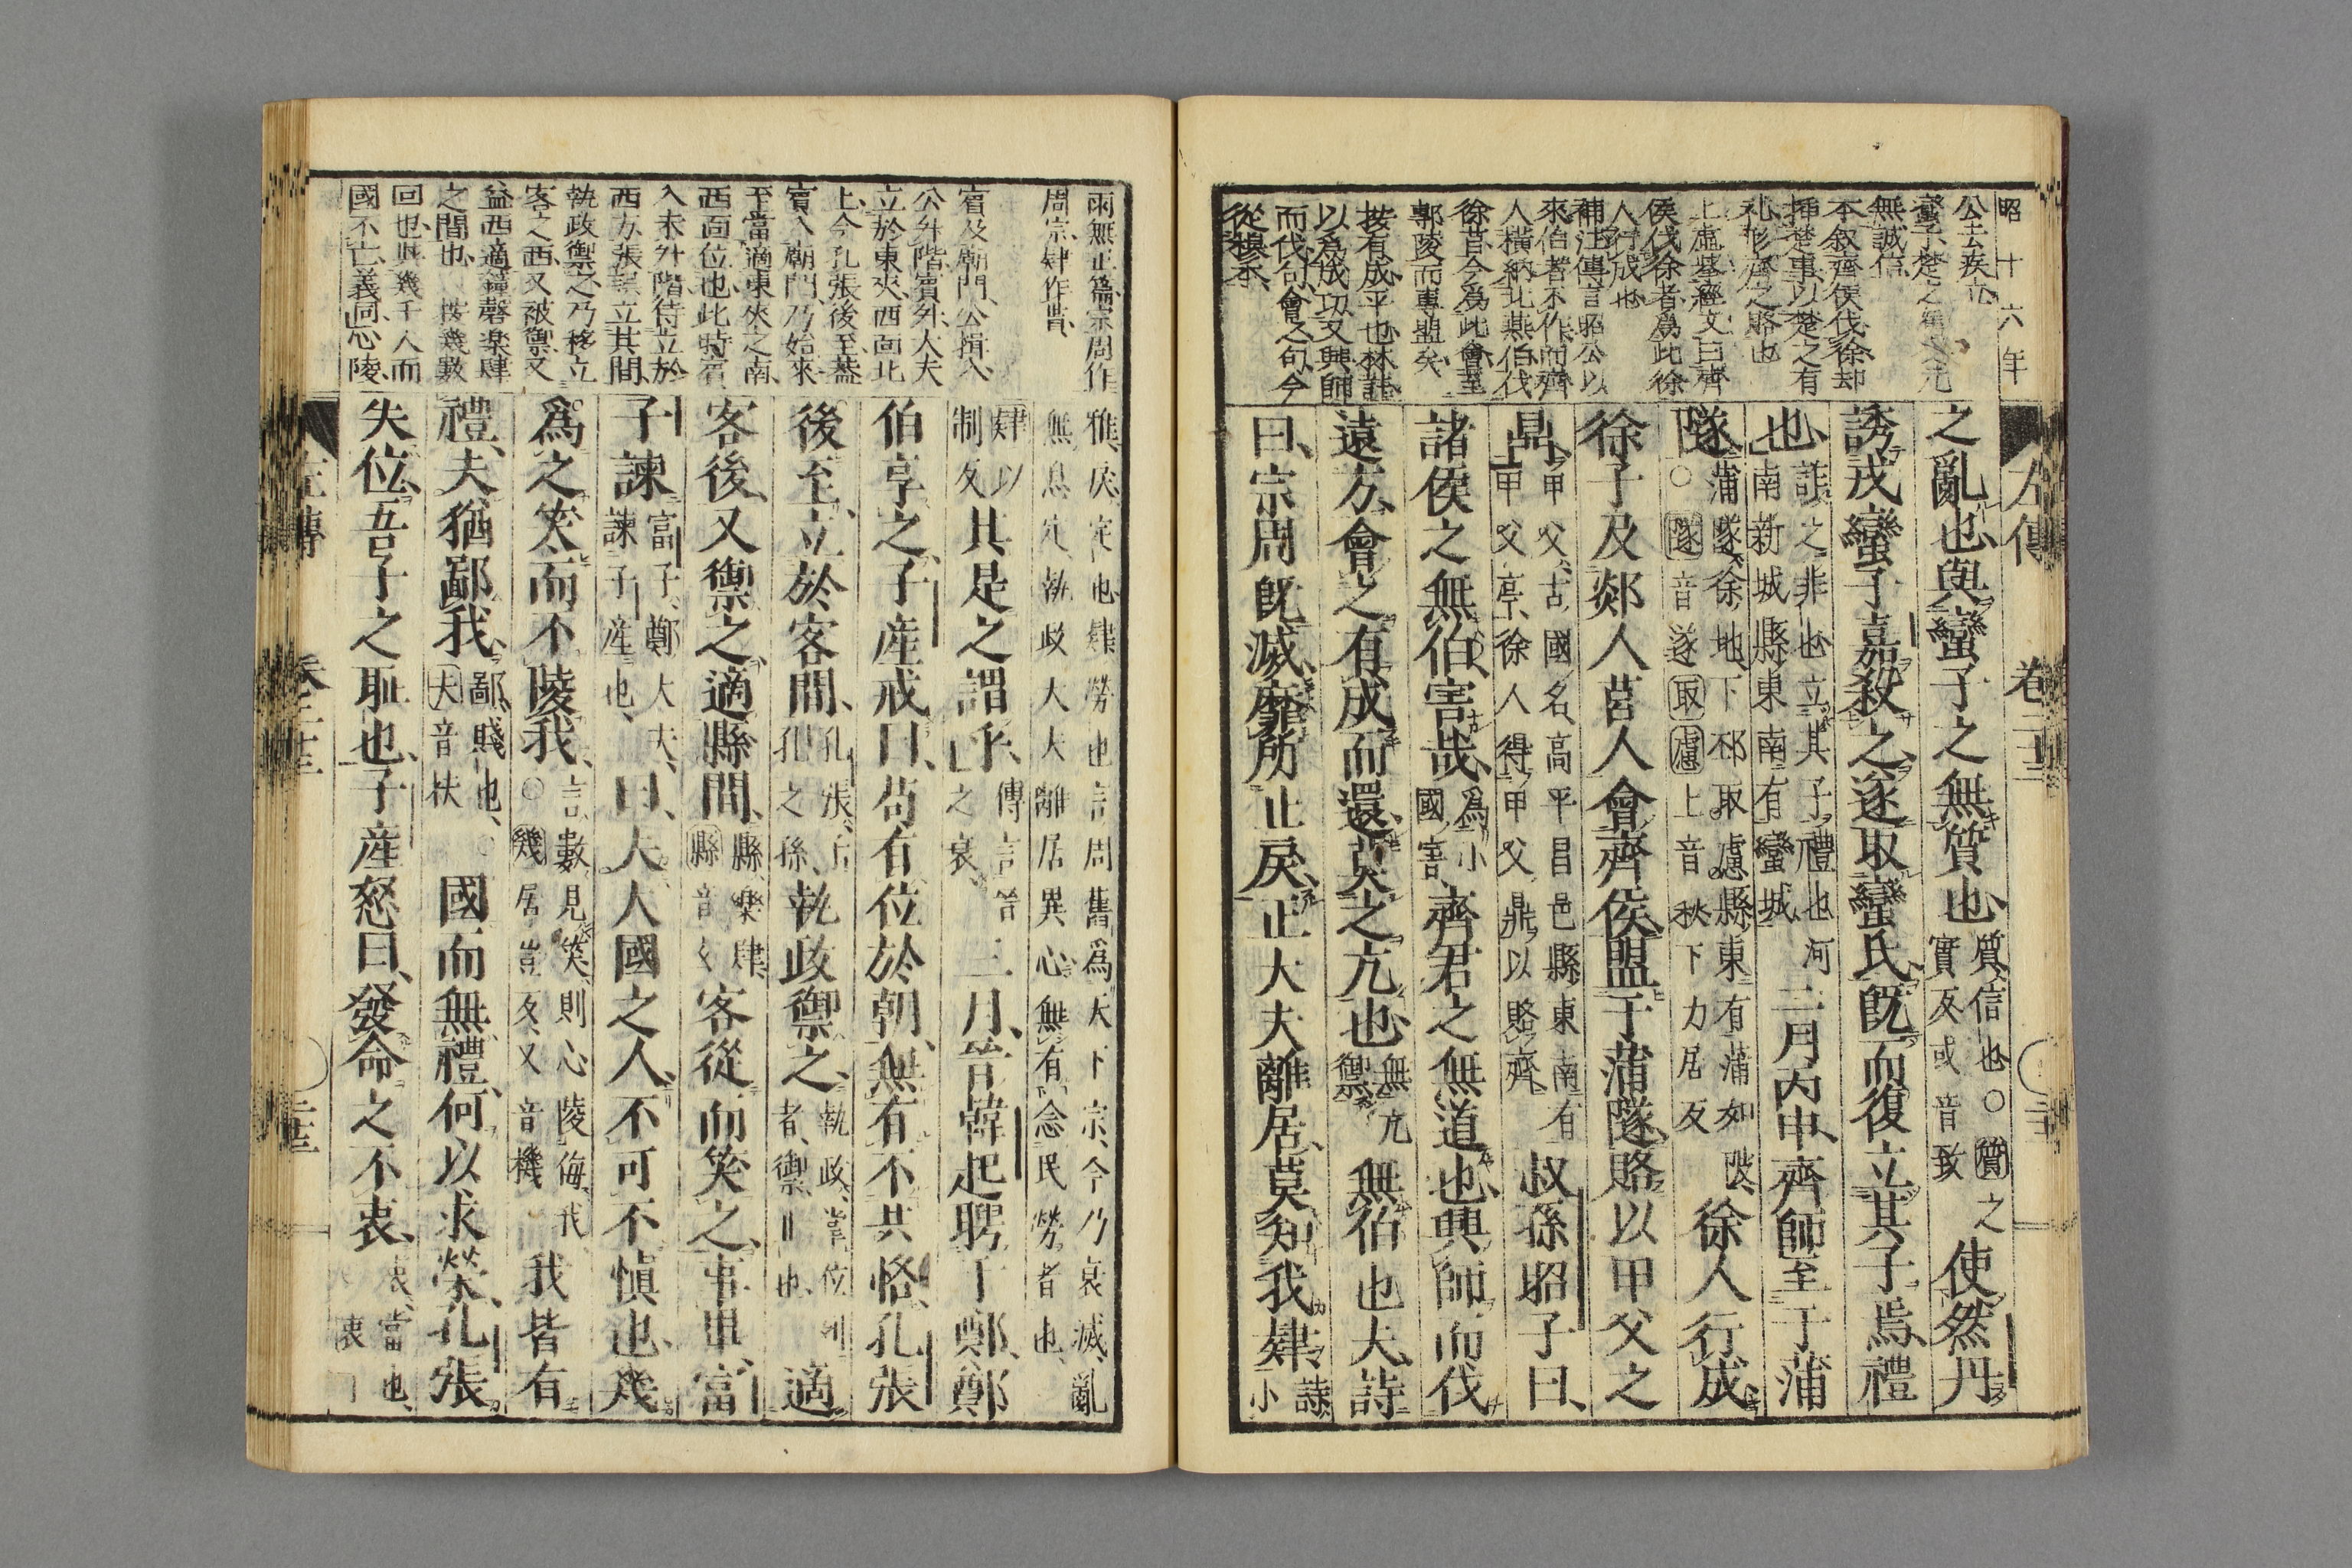 昭十六年
左傳 卷二十三
公去疾立
無誠信
本叙齊侯伐徐却
挿楚事以楚之有
禮形齊之賂也
上虛墓經文曰齊
侯伐徐者爲此徐
人行成也
補注傳言昭公以
來伯者不作而齊
人橫納北燕伯伐
徐昔今爲此會至
鄟陵而專盟矣
按有成平也林註
以爲成功又興師
而伐句會之句今
從穆本
之亂也與蠻子之無質也
質信也○質之
實反或音致
使然丹
誘戎蠻子嘉殺之遂取蠻氏既而復立其子焉禮
也
詐之非也立其子禮也河
南新城縣東南有蠻城
二月丙申齊師至于蒲
隧
蒲隧徐地下邳取慮縣東有蒲如陂
○隧音遂取慮上音秋下力居反
徐人行成
徐子及郯人莒人會齊侯盟于蒲隧賂以甲父之
鼎
甲父古國名高平昌邑縣東南有
甲父亭徐人得甲父鼎以賂齊
叔孫昭子曰
諸侯之無伯害哉
爲小
國害
齊君之無道也興師而伐
遠方會之有成而還莫之亢也
無亢
禦
無伯也夫詩
曰宗周既滅靡所止戾正大夫離居莫知我肄
詩小
雨無正篇宗周作
周宗肄作勩
賓及廟門公揖入
公升階賓升大夫
立於東夾西面北
上今孔張後至蓋
賓入廟門乃始來
至當適東夾之南
西面位也此時賓
入未升階待立於
西方張誤立其間
執政禦之乃移立
客之西又被禦又
益西適鐘磬楽肆
之間也 按幾數
回也與幾千人而
國不亡義同心陵
雅戾定也肄勞也言周舊爲天下宗今乃衰滅亂
無息定執政大夫離居異心無有念民勞者也
肄以
制反
其是之謂乎
傳言晉
之衰
三月晉韓起聘于鄭鄭
伯享之子產戒曰苟有位於朝無有不共恪孔張
後至立於客間
孔張子
孔之孫
執政禦之
執政掌位列
者禦止也
適
客後又禦之適縣間
縣樂肆
縣音玄
客從而笑之事畢富
子諫
富子鄭大夫
諫子產也
曰夫大國之人不可不愼也幾
爲之笑而不陵我
言數見笑則心陵侮我
○幾居豈反又音機
我皆有
禮夫猶鄙我
鄙賤也
夫音扶
國而無禮何以求榮孔張
失位吾子之恥也子產怒曰發命之不衷
衷當也
左傳 卷二十三